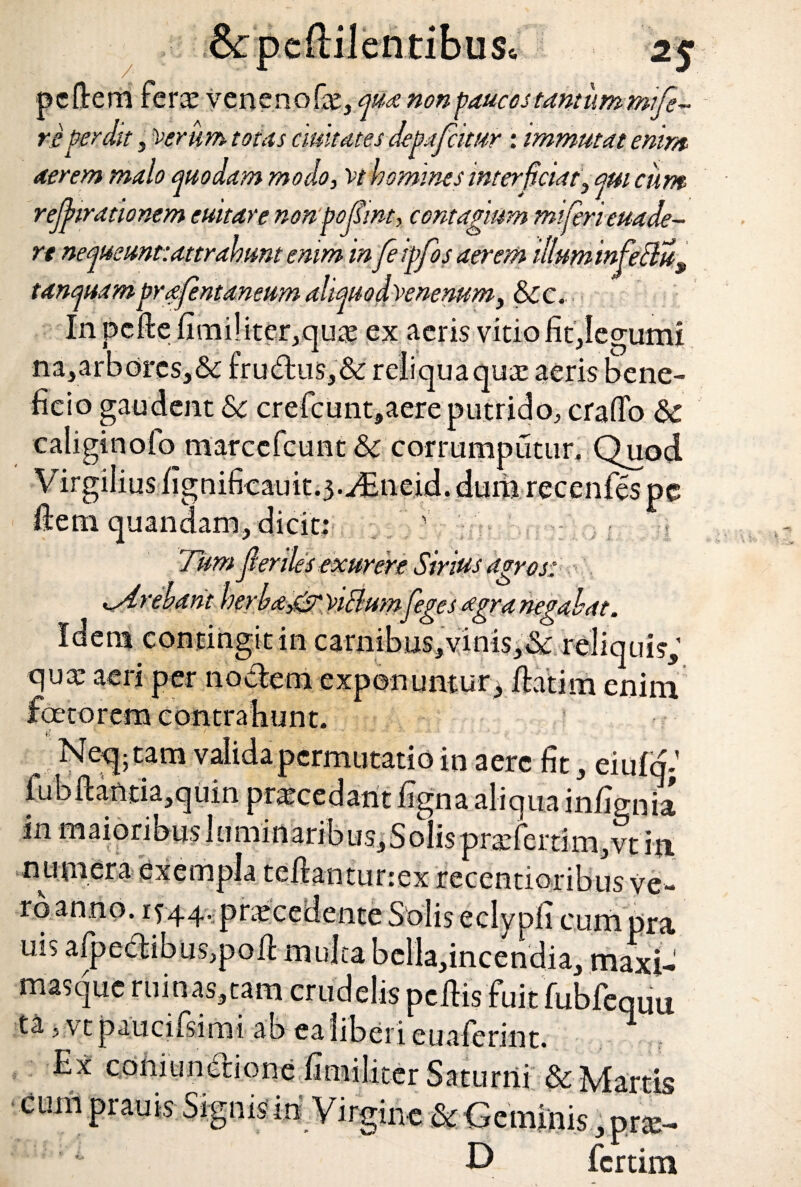 & peſtilentibus. 25
peſtem feræ venenoſæ, quæ non paucos tantùm miſe-
rè perdit, verùm totas ciuitates depaſcitur : immutat enim
aerem malo quodam modo, vt homines interficiat, qui cùm
reſpirationem euitare non poßint, contagium miſeri euade-
re nequeunt: attrahunt enim in ſe ipſos aerem illum infectũ,
tanquam præſentaneum aliquod venenum, &c.
In peſte ſimiliter, quæ ex aeris vitio fit, legumi
na, arbores, & fructus, & reliqua quæ aeris bene-
ficio gaudent & creſcunt, aere putrido, craſſo &
caliginoſo marceſcunt & corrumpũtur. Quod
Virgilius ſignificauit. 3. Æneid. dum recenſes pe
ſtem quandam, dicit:
Tum ſteriles exurere Sirius agros:
Arebant herbæ, & victum ſeges ægra negabat.
Idem contingit in carnibus, vinis, & reliquis,
quæ aeri per noctem exponuntur, ſtatim enim
fœtorem contrahunt.
Neq; tam valida permutatio in aere fit, eiuſq;
ſubſtantia, quin præcedant ſigna aliqua inſignia
in maioribus luminaribus, Solis præſertim, vt in
numera exempla teſtantur: ex recentioribus ve-
rò anno. 1544. præcedente Solis eclypſi cum pra
uis aſpectibus, poſt multa bella, incendia, maxi-
masque ruinas, tam crudelis peſtis fuit ſubſequu
ta, vt pauciſsimi ab ea liberi euaſerint.
Ex coniunctione ſimiliter Saturni & Martis
cum prauis Signis in Virgine & Geminis, præ-
D ſertim